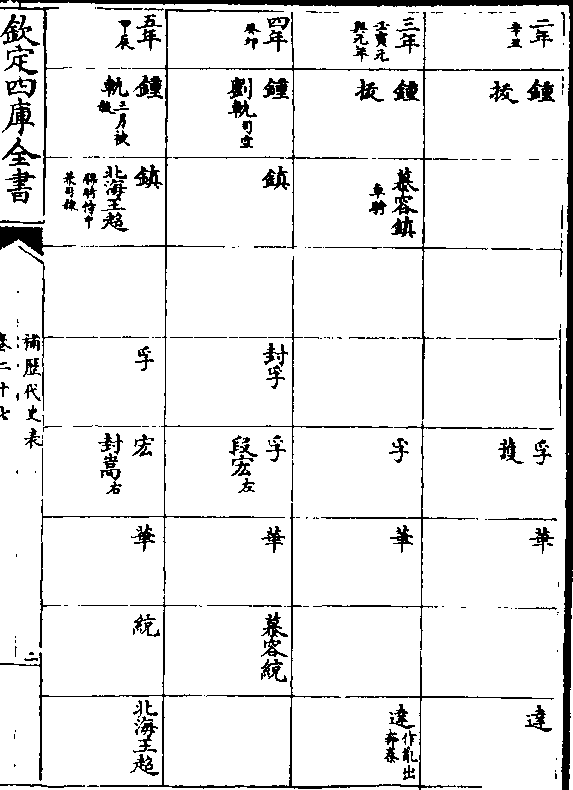 二年
辛丑
鍾
㧞
孚
護
華
達
三年
壬寅元
興元年
鍾
㧞
慕容鎮
車騎
孚
華
達
作亂出
四年
癸卯
鍾
劉軌
司空
鎮
封孚
孚
段宏
左
華
慕容統
五年
甲辰
鍾
軌
三月被
鎮
北海王超
孚
宏
封嵩
右
華
統
北海王超
欽定四庫全書
補歴代史表
卷二十七
二